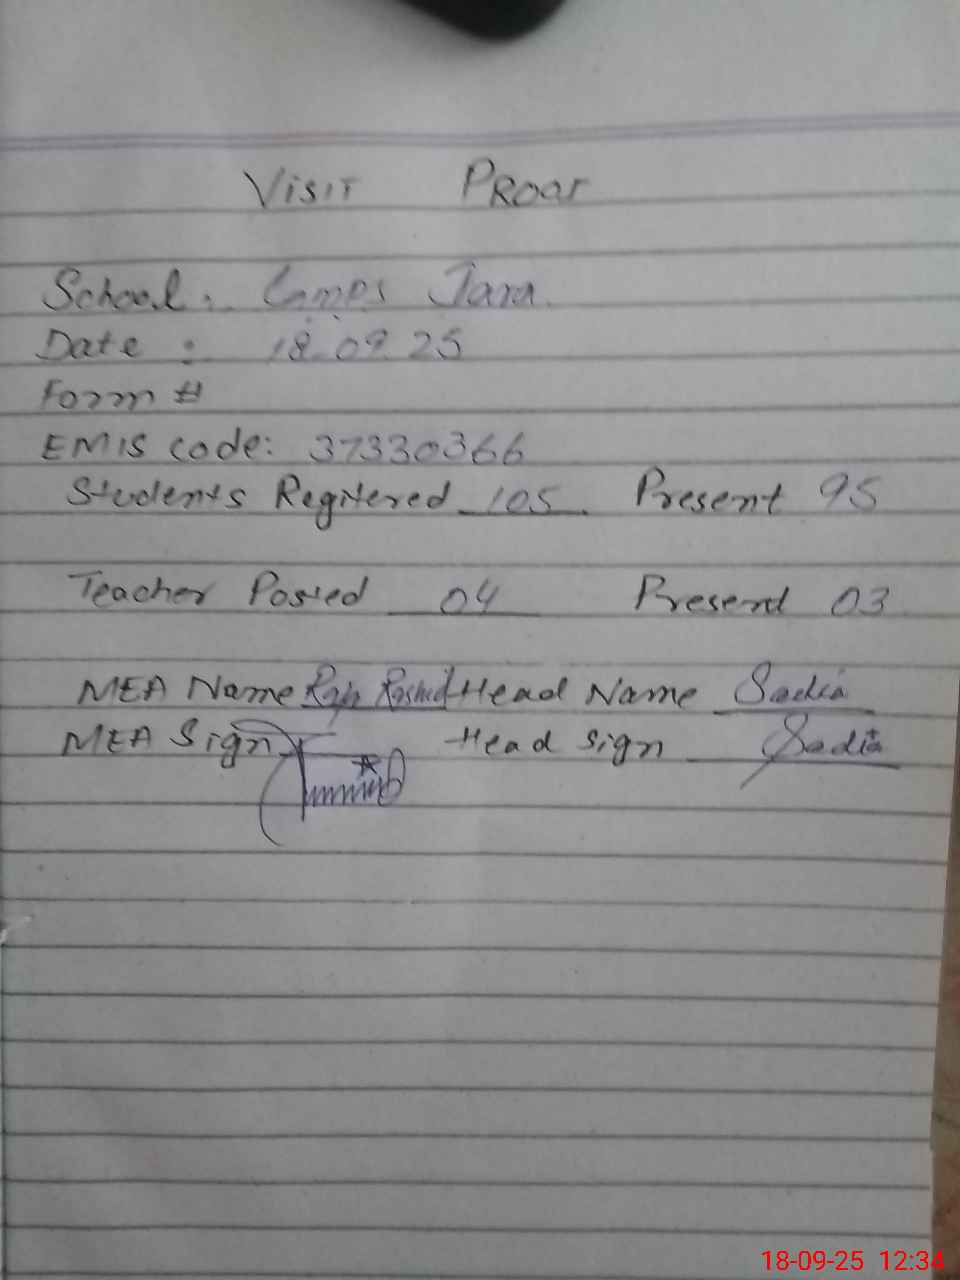 Visit Proof
School: Gmps Jara.
Date : 18.09.25
Form #
EMIS code: 37330366
Students Regitered 105 Present 95
Teacher Posted 04 Present 03
MEA Name Raja Rashid Head Name Sadia
MEA Sign Head sign Sadia
18-09-25 12:34